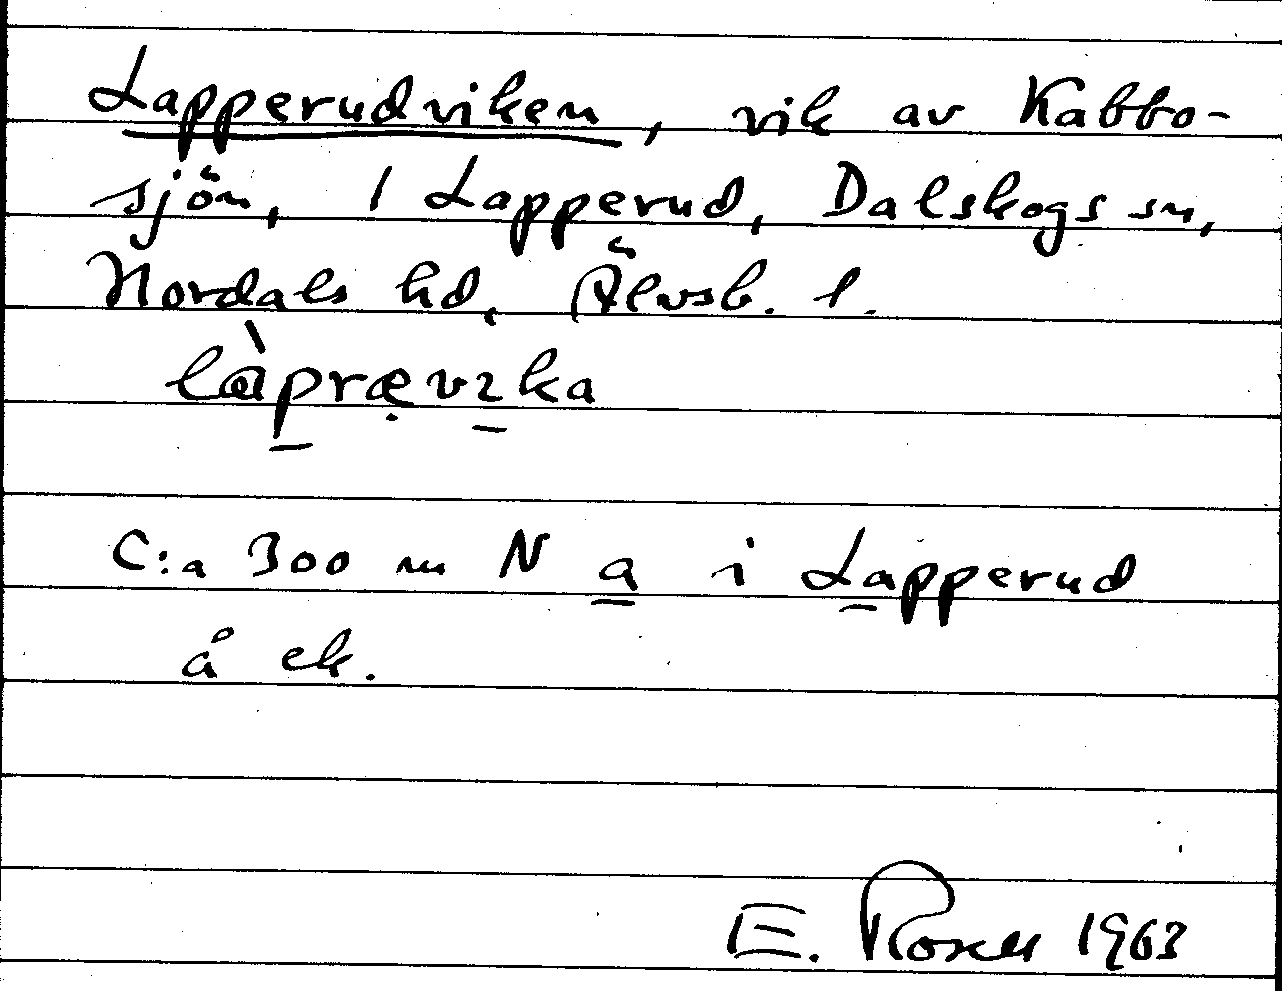 Lapperudviken, vik av Kabbo-
sjön, 1 Lapperud, Dalskogs sn,
Nordals hd, Älvsb. l.
làprævıka
C:a 300 m N a i Lapperud
å ek.
E. 1963